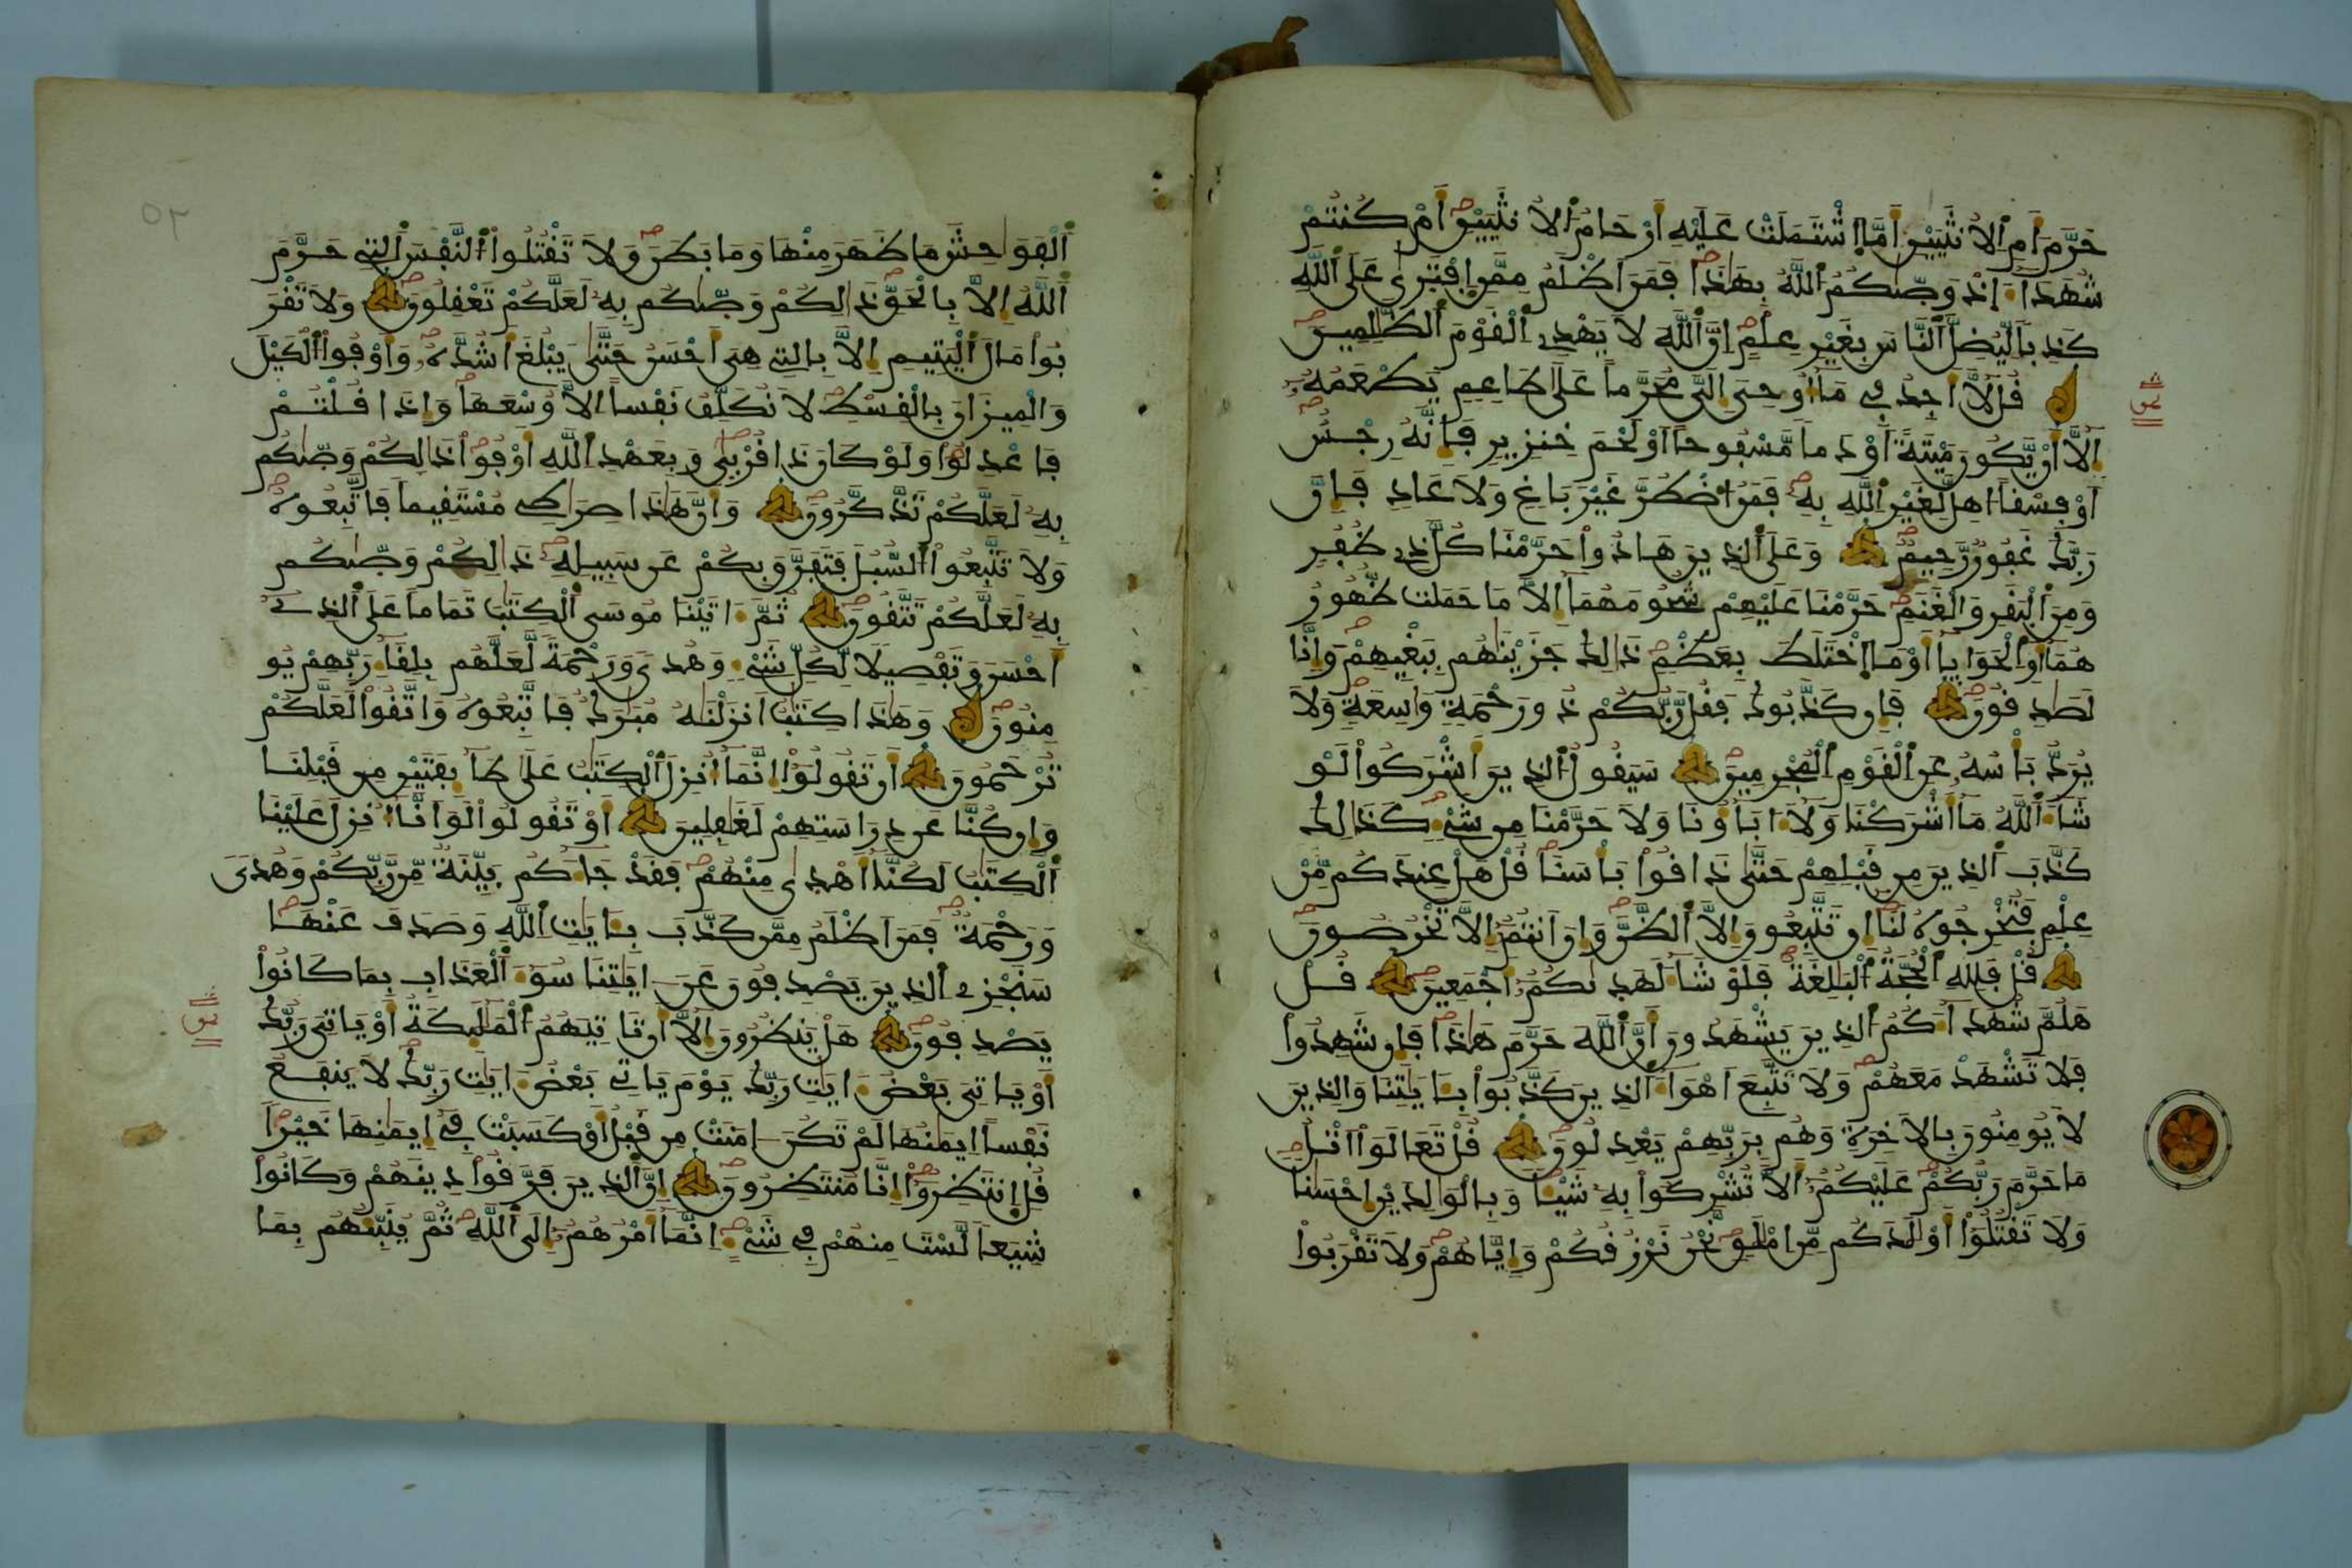 حَرَّمَ أَمِ اِلُانثَيَيْنِ أَمَّا اَشْتَمَلَتْ عَلَيْهِ أَرْحَامُ اُلُانثَيَيْنِ أَمْ كُنتُمْ
شُهَدَآءَ اِذْ وَصّٜىٰكُمُ اُللَّهُ بِهَٰذَا فَمَنَ اَظْلَمُ مِمَّنِ اِفْتَرٜىٰ عَلَى اَللَّهِ
كَذِباٗ لِّيُضِلَّ اَلنَّاسَ بِغَيْرِ عِلْمٍ اِنَّ اَللَّهَ لَا يَهْدِے اِلْقَوْمَ اَلظَّٰلِمِينَ
قُل لَّآ أَجِدُ فِے مَآ أُوحِىَ إِلَىَّ مُحَرَّماً عَلَىٰ طَاعِمٖ يَطْعَمُهُۥٓ
إِلَّآ أَنْ يَّكُونَ مَيْتَةً اَوْ دَماٗ مَّسْفُوحاً اَوْ لَحْمَ خِنزِيرٖ فَإِنَّهُۥ رِجْسٌ
اَوْ فِسْقاً اُهِلَّ لِغَيْرِ اِللَّهِ بِهِۦ فَمَنُ اُضْطُرَّ غَيْرَ بَاغٖ وَلَا عَادٖ فَإِنَّ
رَبَّكَ غَفُورٞ رَّحِيمٞ وَعَلَى اَلذِينَ هَادُواْ حَرَّمْنَا كُلَّ ذِے ظُفُرٖ
وَمِنَ اَلْبَقَرِ وَالْغَنَمِ حَرَّمْنَا عَلَيْهِمْ شُحُومَهُمَآ إِلَّا مَا حَمَلَت ظُّهُورُ
هُمَآ أَوِ اِلْحَوَايَآ أَوْ مَا اَخْتَلَطَ بِعَظْمٖ ذَٰلِكَ جَزَيْنَٰهُم بِبَغْيِهِمْ وَإِنَّا
لَصَٰدِقُونَ فَإِن كَذَّبُوكَ فَقُل رَّبُّكُمْ ذُو رَحْمَةٖ وَٰسِعَةٖ وَلَا
يُرَدُّ بَأْسُهُۥ عَنِ اِلْقَوْمِ اِلْمُجْرِمِينَ سَيَقُولُ اُلذِينَ أَشْرَكُواْ لَوْ
شَآءَ اَللَّهُ مَآ أَشْرَكْنَا وَلَآ ءَابَآؤُنَا وَلَا حَرَّمْنَا مِن شَےْءٖ كَذَٰلِكَ
كَذَّبَ اَلذِينَ مِن قَبْلِهِمْ حَتَّىٰ ذَاقُواْ بَأْسَنَا قُلْ هَلْ عِندَكُم مِّنْ
عِلْمٖ فَتُخْرِجُوهُ لَنَآ إِن تَتَّبِعُونَ إِلَّا اَلظَّنَّ وَإِنَ اَنتُمُۥٓ إِلَّا تَخْرُصُونَ
قُلْ فَلِلهِ اِلْحُجَّةُ اُلْبَٰلِغَةُ فَلَوْ شَآءَ لَهَد۪ىٰكُمُۥٓ أَجْمَعِينَ قُلْ
هَلُمَّ شُهَدَآءَكُمُ اُلذِينَ يَشْهَدُونَ أَنَّ اَللَّهَ حَرَّمَ هَٰذَا فَإِن شَهِدُواْ
فَلَا تَشْهَدْ مَعَهُمْ وَلَا تَتَّبِعَ اَهْوَآءَ اَلذِينَ كَذَّبُواْ بِـَٔايَٰتِنَا وَالذِينَ
لَا يُومِنُونَ بِالَاخِرَةِ وَهُم بِرَبِّهِمْ يَعْدِلُونَ قُلْ تَعَالَوَاْ اَتْلُ
مَا حَرَّمَ رَبُّكُمْ عَلَيْكُمُۥٓ أَلَّا تُشْرِكُواْ بِهِۦ شَيْـٔاٗ وَبِالْوَٰلِدَيْنِ إِحْسَٰناٗ
وَلَا تَقْتُلُوٓاْ أَوْلَٰدَكُم مِّنِ اِمْلَٰقٖ نَّحْنُ نَرْزُقُكُمْ وَإِيَّاهُمْ وَلَا تَقْرَبُواْ
اُلْفَوَٰحِشَ مَا ظَهَرَ مِنْهَا وَمَا بَطَنَ وَلَا تَقْتُلُواْ اُلنَّفْسَ اَلتِے حَرَّمَ
اَللَّهُ إِلَّا بِالْحَقِّ ذَٰلِكُمْ وَصّٜىٰكُم بِهِۦ لَعَلَّكُمْ تَعْقِلُونَ وَلَا تَقْرَ
بُواْ مَالَ اَلْيَتِيمِ إِلَّا بِالتِے هِىَ أَحْسَنُ حَتَّىٰ يَبْلُغَ أَشُدَّهُۥ وَأَوْفُواْ اُلْكَيْلَ
وَالْمِيزَانَ بِالْقِسْطِ لَا نُكَلِّفُ نَفْساً اِلَّا وُسْعَهَا وَإِذَا قُلْتُمْ
فَاعْدِلُواْ وَلَوْ كَانَ ذَا قُرْبٜىٰ وَبِعَهْدِ اِللَّهِ أَوْفُواْ ذَٰلِكُمْ وَصّٜىٰكُم
بِهِۦ لَعَلَّكُمْ تَذَّكَّرُونَ وَأَنَّ هَٰذَا صِرَٰطِے مُسْتَقِيماٗ فَاتَّبِعُوهُ
وَلَا تَتَّبِعُواْ اُلسُّبُلَ فَتَفَرَّقَ بِكُمْ عَن سَبِيلِهِۦ ذَٰلِكُمْ وَصّٜىٰكُم
بِهِۦ لَعَلَّكُمْ تَتَّقُونَ ثُمَّ ءَاتَيْنَا مُوسَى اَلْكِتَٰبَ تَمَاماً عَلَى اَلذِےٓ
أَحْسَنَ وَتَفْصِيلاٗ لِّكُلِّ شَےْءٖ وَهُدىٗ وَرَحْمَةٗ لَّعَلَّهُم بِلِقَآءِ رَبِّهِمْ يُو
مِنُونَ وَهَٰذَا كِتَٰبٌ اَنزَلْنَٰهُ مُبَٰرَكٞ فَاتَّبِعُوهُ وَاتَّقُواْ لَعَلَّكُمْ
تُرْحَمُونَ أَن تَقُولُوٓاْ إِنَّمَآ أُنزِلَ اَلْكِتَٰبُ عَلَىٰ طَآئِفَتَيْنِ مِن قَبْلِنَا
وَإِن كُنَّا عَن دِرَاسَتِهِمْ لَغَٰفِلِينَ أَوْ تَقُولُواْ لَوَ اَنَّآ أُنزِلَ عَلَيْنَا
اَلْكِتَٰبُ لَكُنَّآ أَهْدٜىٰ مِنْهُمْ فَقَدْ جَآءَكُم بَيِّنَةٞ مِّن رَّبِّكُمْ وَهُدىٗ
وَرَحْمَةٞ فَمَنَ اَظْلَمُ مِمَّن كَذَّبَ بِـَٔايَٰتِ اِللَّهِ وَصَدَفَ عَنْهَا
سَنَجْزِے اِلذِينَ يَصْدِفُونَ عَنَ ايَٰتِنَا سُوٓءَ اَلْعَذَابِ بِمَا كَانُواْ
يَصْدِفُونَ هَلْ يَنظُرُونَ إِلَّآ أَن تَاتِيَهُمُ اُلْمَلَٰٓئِكَةُ أَوْ يَاتِىَ رَبُّكَ
أَوْ يَاتِىَ بَعْضُ ءَايَٰتِ رَبِّكَ يَوْمَ يَاتِے بَعْضُ ءَايَٰتِ رَبِّكَ لَا يَنفَعُ
نَفْساً اِيمَٰنُهَا لَمْ تَكُنَ اٰمَنَتْ مِن قَبْلُ أَوْ كَسَبَتْ فِےٓ إِيمَٰنِهَا خَيْراٗ
قُلِ اِنتَظِرُوٓاْ إِنَّا مُنتَظِرُونَ إِنَّ اَلذِينَ فَرَّقُواْ دِينَهُمْ وَكَانُواْ
شِيَعاٗ لَّسْتَ مِنْهُمْ فِے شَےْءٍ اِنَّمَآ أَمْرُهُمُۥٓ إِلَى اَللَّهِ ثُمَّ يُنَبِّئُهُم بِمَا